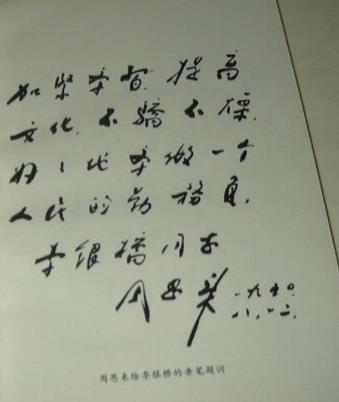 加紧学习，提高
文化，不骄不躁，
好好地学做一个
人民的勤务员。
李银桥同志
周恩来 一九五〇
八·一二·
周恩来给李银桥的亲笔题词